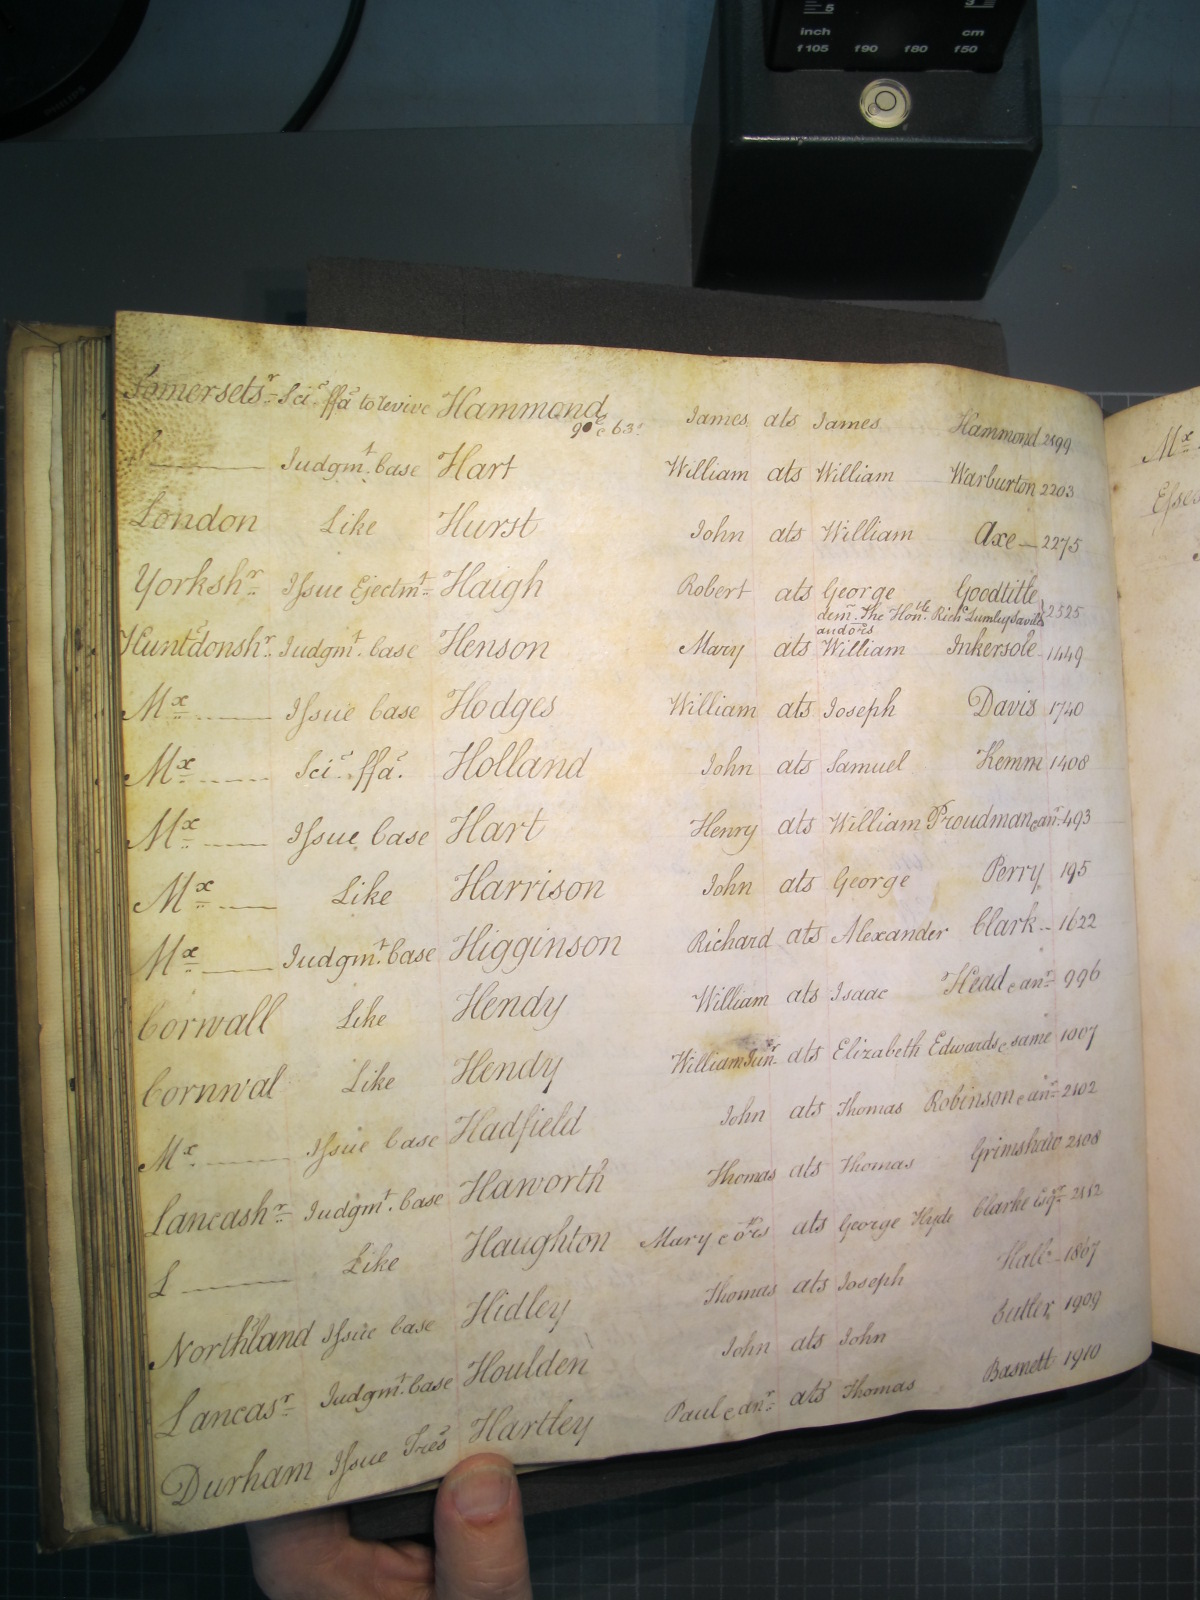 5 3
inch cm
f105 f90 f80 f50
PHILIPS
Somersetsr Scie ffa to revive Hammond James ats James Hammond 2499
L Judgmt. Case Hart William ats William Warburton 2203
London Like Hurst John ats William Axe 2275
Yorkshr Issue Ejectmt Haigh Robert ats George Goodtitle 2525
dem. The Honble Richd Lumley Savile
and ors
Huntdonshr Judgmt. Case Henson Mary ats William Inkersole 1449
Mx Issue Case Hodges William ats Joseph Davis 1740
Mx Scie ffa. Holland John ats Samuel Kemm 1408
Mx Issue Case Hart Henry ats William Proudman & anr 493
Mx Like Harrison John ats George Perry 195
Mx Judgmt. Case Higginson Richard ats Alexander Clark 1622
Corwall Like Hendy William ats Isaac Head & anr 996
Cornwal Like Hendy William Junr ats Elizabeth Edwards & same 1007
Mx Issue Case Hadfield John ats Thomas Robinson & anr 2102
Lancashr Judgmt. Case Haworth Thomas ats Thomas Grimshaw 2108
L Like Haughton Mary & ors ats George Hyde Clarke Esqr 2112
Northland Issue Case Hidley Thomas ats Joseph Hall 1867
Lancasr Judgmt. Case Houlden John ats John Butler 1909
Durham Issue Tres Hartley Paul & anr ats Thomas Basnett 1910
Mx